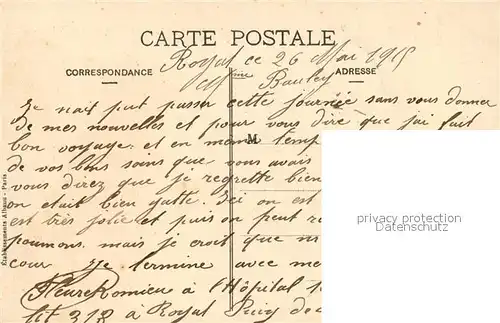 CARTE POSTALE
Royat ce 26 Mai 1915
CORRESPONDANCE
ADRESSE
Mme Bauley
Je nait put passer cette journée sans vous donner
de mes nouvelles et pour vous dire que jai fait
bon voyage. et en même temp
M
de vos bons soins que vous avais
vous direz que je regrette bien
on etait bien gatte. Ici on est
est très jolie et puis on peut
poumons. mais je croit que
cour Je termine avec me
Fleuret Romieu a l'Hôpital
Lit 318 à Royat Puy de
Etablissements Albaux - Paris
privacy protection
Datenschutz